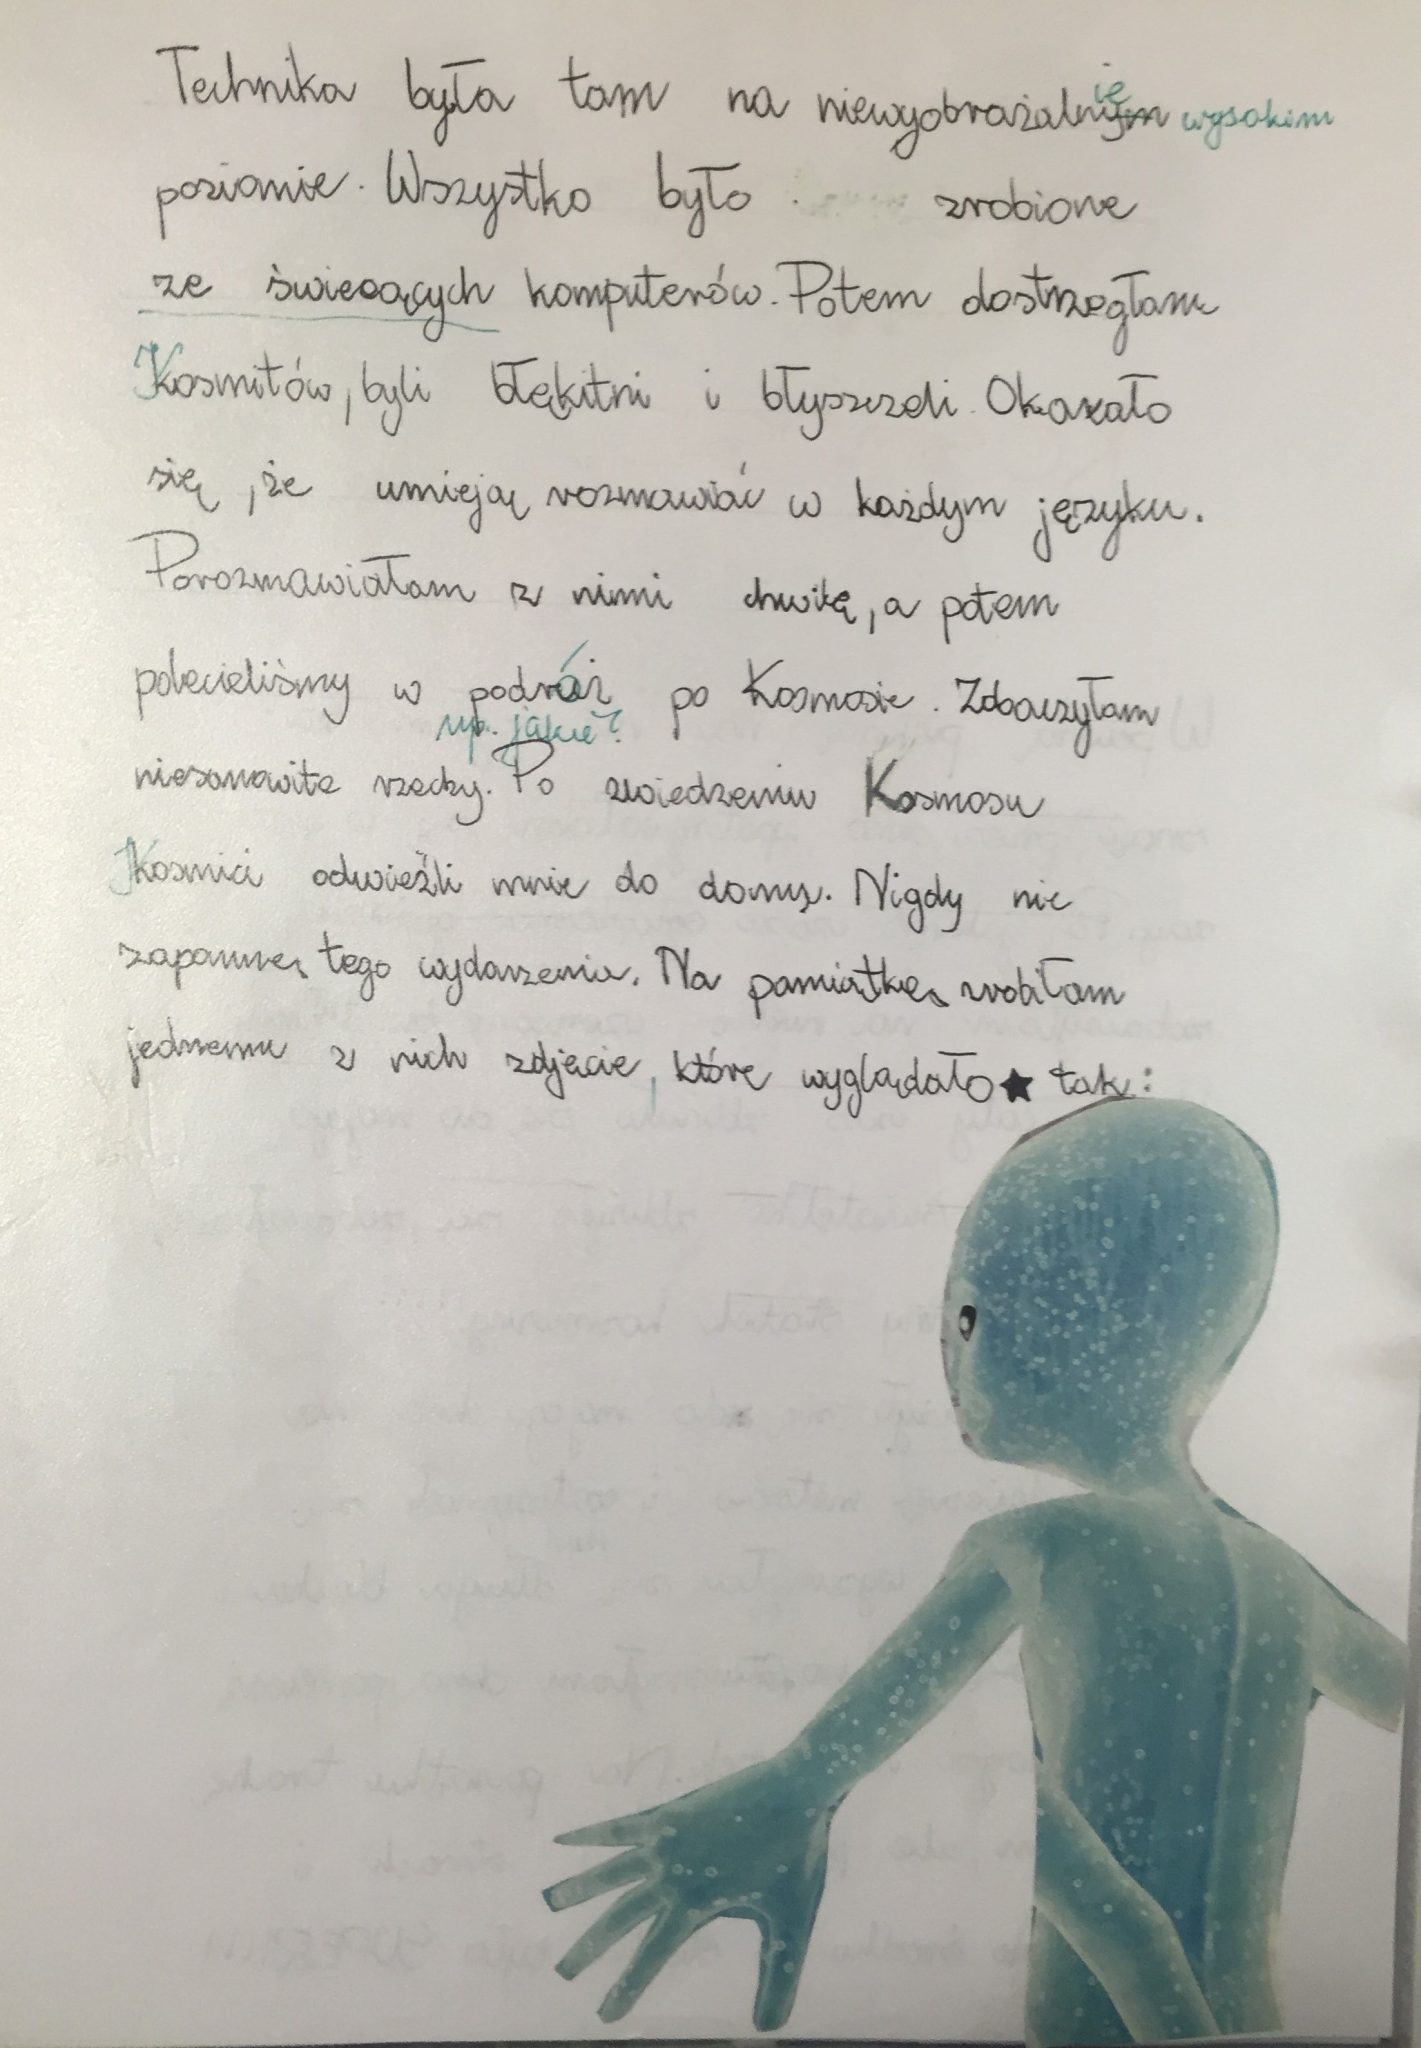 Technika była tam na niewyobrażalnym ie wysokim
poziomie. Wszystko było zrobione
ze świecących komputerów. Potem dostrzegłam
Kosmitów, byli błękitni i błyszczeli. Okazało
się, że umieją rozmawiać w każdym języku.
Porozmawiałam z nimi chwilę, a potem
polecieliśmy w podróż po Kosmosie. Zobaczyłam
np. jakie?
niesamowite rzeczy. Po zwiedzeniu Kosmosu
Kosmici odwieźli mnie do domu. Nigdy nie
zapomnę tego wydarzenia. Na pamiątkę zrobiłam
jednemu z nich zdjęcie, które wyglądało tak: